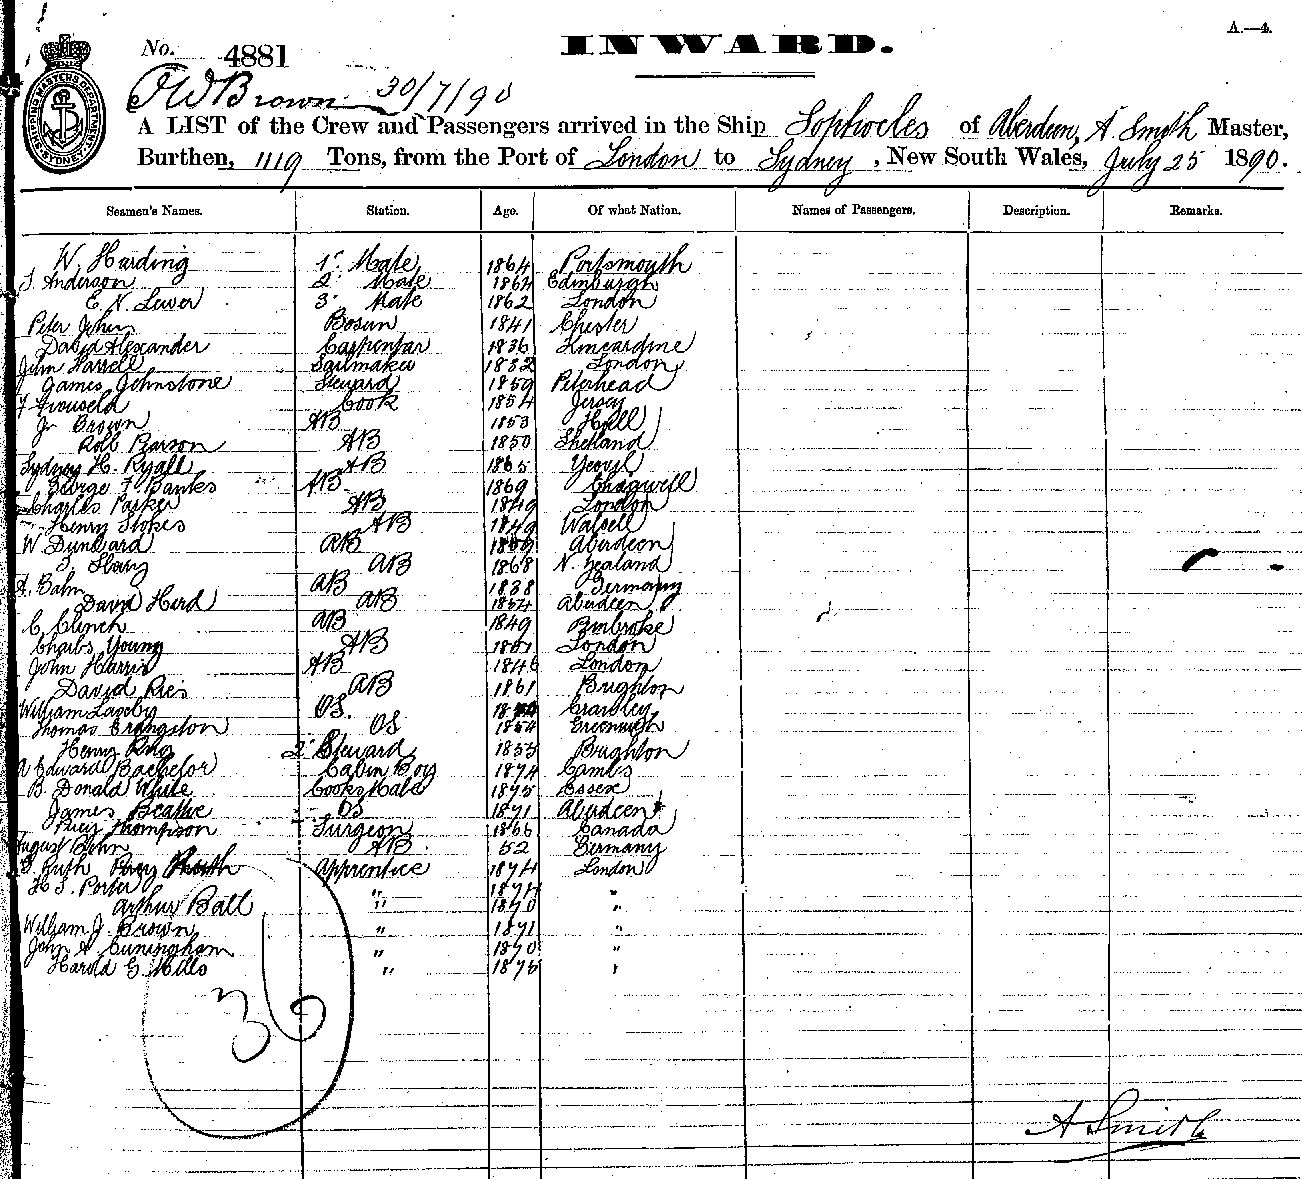 A.—4.
INWARD.
No. 4881
SHIPPING MASTERS DEPARTMENT SYDNEY
J W Brown 30/7/90
A LIST of the Crew and Passengers arrived in the Ship Sophocles of Aberdeen, A. Smith Master,
Burthen, 1119 Tons, from the Port of London to Sydney, New South Wales, July 25 1890.
Seamen's Names. Station. Age. Of what Nation. Names of Passengers. Description. Remarks.
W. Harding 1st Mate 1864 Portsmouth
Anderson 2 Mate 1864 Edinburgh
E. N. Lewer 3 Mate 1862 London
Peter Johns Bosun 1841 Chester
David Alexander Carpenter 1836 Kincardine
John Hassell Sailmaker 1832 London
James Johnstone Steward 1859 Peterhead
Cook 1854 Jersey
Brown AB 1853 Hull
Robt Pearson AB 1850 Shetland
Sydney H. Ryall AB 1865 Yeovil
George F. Banks AB 1869 Chigwell
Charles Parker AB 1849 London
Henry Stokes AB 1849 Walsell
W Dunbard AB Aberdeen
AB 1868 N. Zealand
A. Bahn AB 1838 Germany
David Herd AB 1854 Aberdeen
C. Clinch AB 1849 Pembroke
Charles Young AB London
John Harris AB 1846 London
David Rees AB 1861 Brighton
William Laseby OS. Crawley
Thomas Crangston OS 1854 Greenwich
Henry 2nd Steward 1855 Brighton
Edward Bachelor Cabin Boy 1874 Cambs
B. Donald White Cooks Mate 1875 Essex
James Beattie OS 1871 Aberdeen
Percy Thompson Surgeon 1866 Canada
August Behn AB 52 Germany
Ruth Percy Apprentice 1874 London
H S. Porter " 1874 "
Arthur Ball " 1870 "
William J. Brown " 1871 "
John A Cuningham " 1870 "
Harold G. Mills " 1875 "
36
A Smith